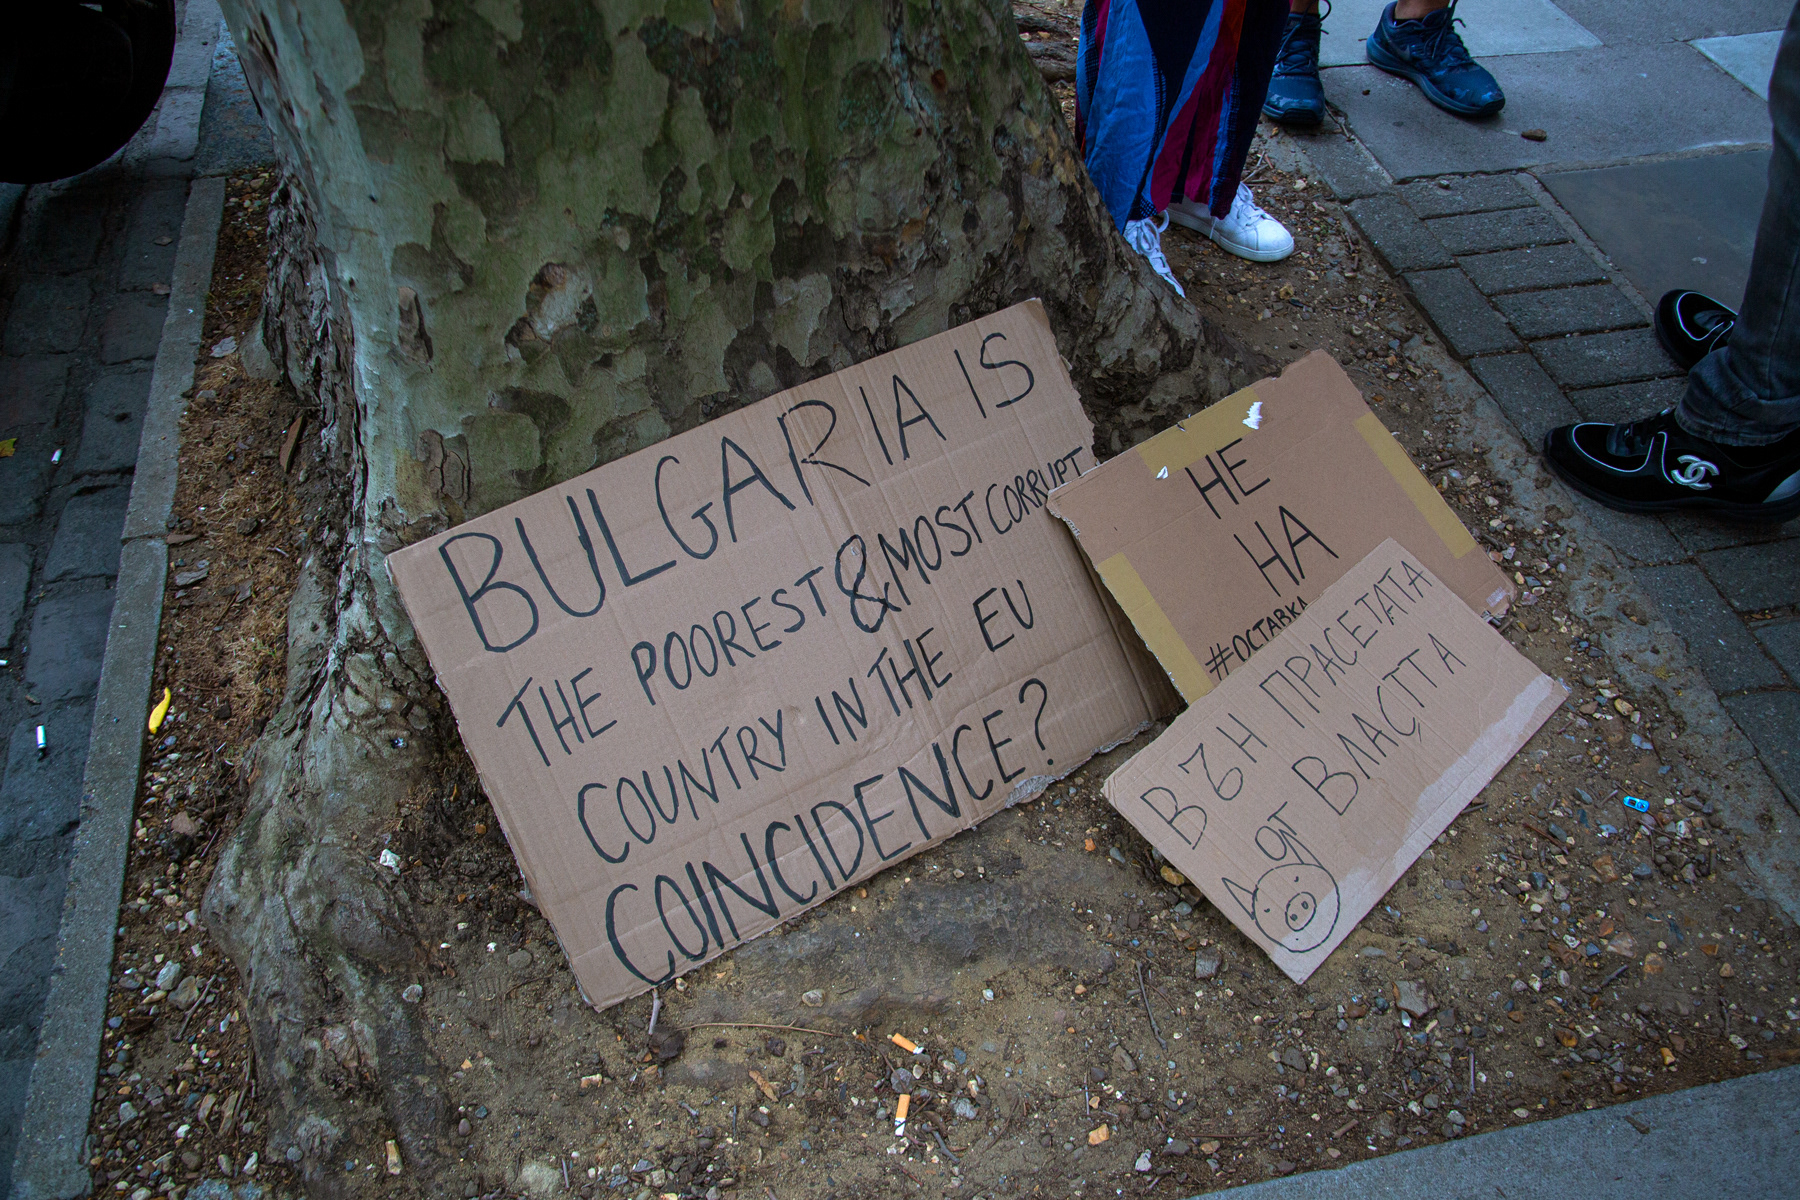 BULGARIA IS
THE POOREST & MOST CORRUPT
COUNTRY IN THE EU
COINCIDENCE?
НЕ
НА
#ОСТАВКА
ВЪН ПРАСЕТАТА
от ВЛАСТТА